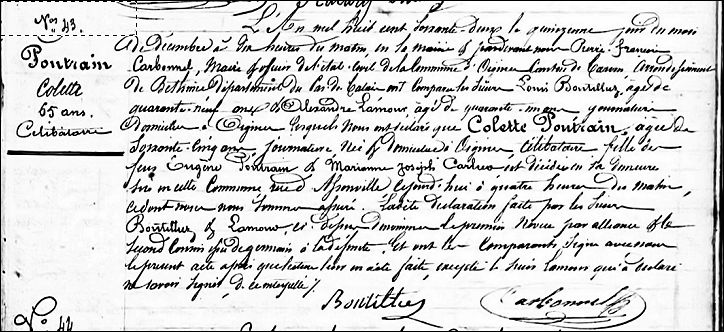 N° 43.
Pontrain
Colette
65 ans.
Célibataire
L'An mil huit cent soixante deux le quinzième jour du mois
de Décembre à dix heures du matin en la mairie & pardevant nous Pierre François
Carbonnel, Maire officier de l'état-Civil de la Commune d'Oignies Canton de Carvin, Arrondissement
de Béthune département du Pas de Calais ont comparu les Sieurs Louis Boutillez, agé de
quarante neuf ans & Alexandre Lamour agé de quarante ans journaliers
Domiciliés à Oignies lesquels nous ont déclaré que Colette Pontrain, agée de
Soixante cinq ans journalière née & domiciliée à Oignies, célibataire fille de
feus Eugène Pontrain & Marianne Joseph est décédée en sa demeure
sise en cette Commune rue d' aujourd'hui à quatre heures du matin,
ce dont nous nous sommes assuré. La dite déclaration faite par les Sieurs
Boutillez & Lamour ci-dessus dénommés le premier Neveu par alliance & le
second Cousin germain à la défunte, Et ont les Comparants signé avec nous
le présent acte après que lecture leur en a été faite, excepté le Sieur Lamour qui a déclaré
ne savoir signer, de ce interpellé /.
Boutillez Carbonnel
N° 44